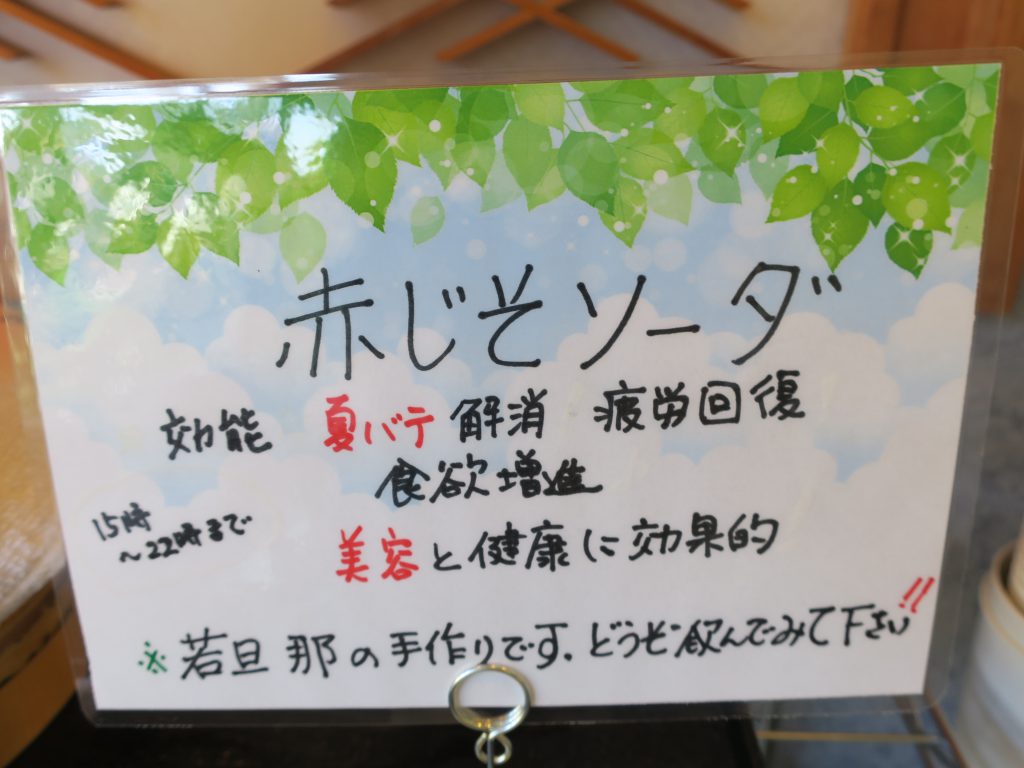 赤じそソーダ
効能 夏バテ解消 疲労回復
食欲増進
15時
～22時まで
美容と健康に効果的
※若旦那の手作りです。どうぞ飲んでみて下さい!!